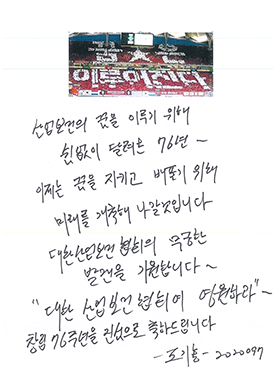 이루어진다
산업보건의 꿈을 이루기 위해
쉼없이 달려온 76년~
이제는 꿈을 지키고 베풀기 위해
미래를 개척해 나갈것입니다
대한산업보건협회의 무궁한
발전을 기원합니다~
"대한산업보건협회여 영원하라"~
창립 76주년을 진심으로 축하드립니다
- 조기홍 - 2020097